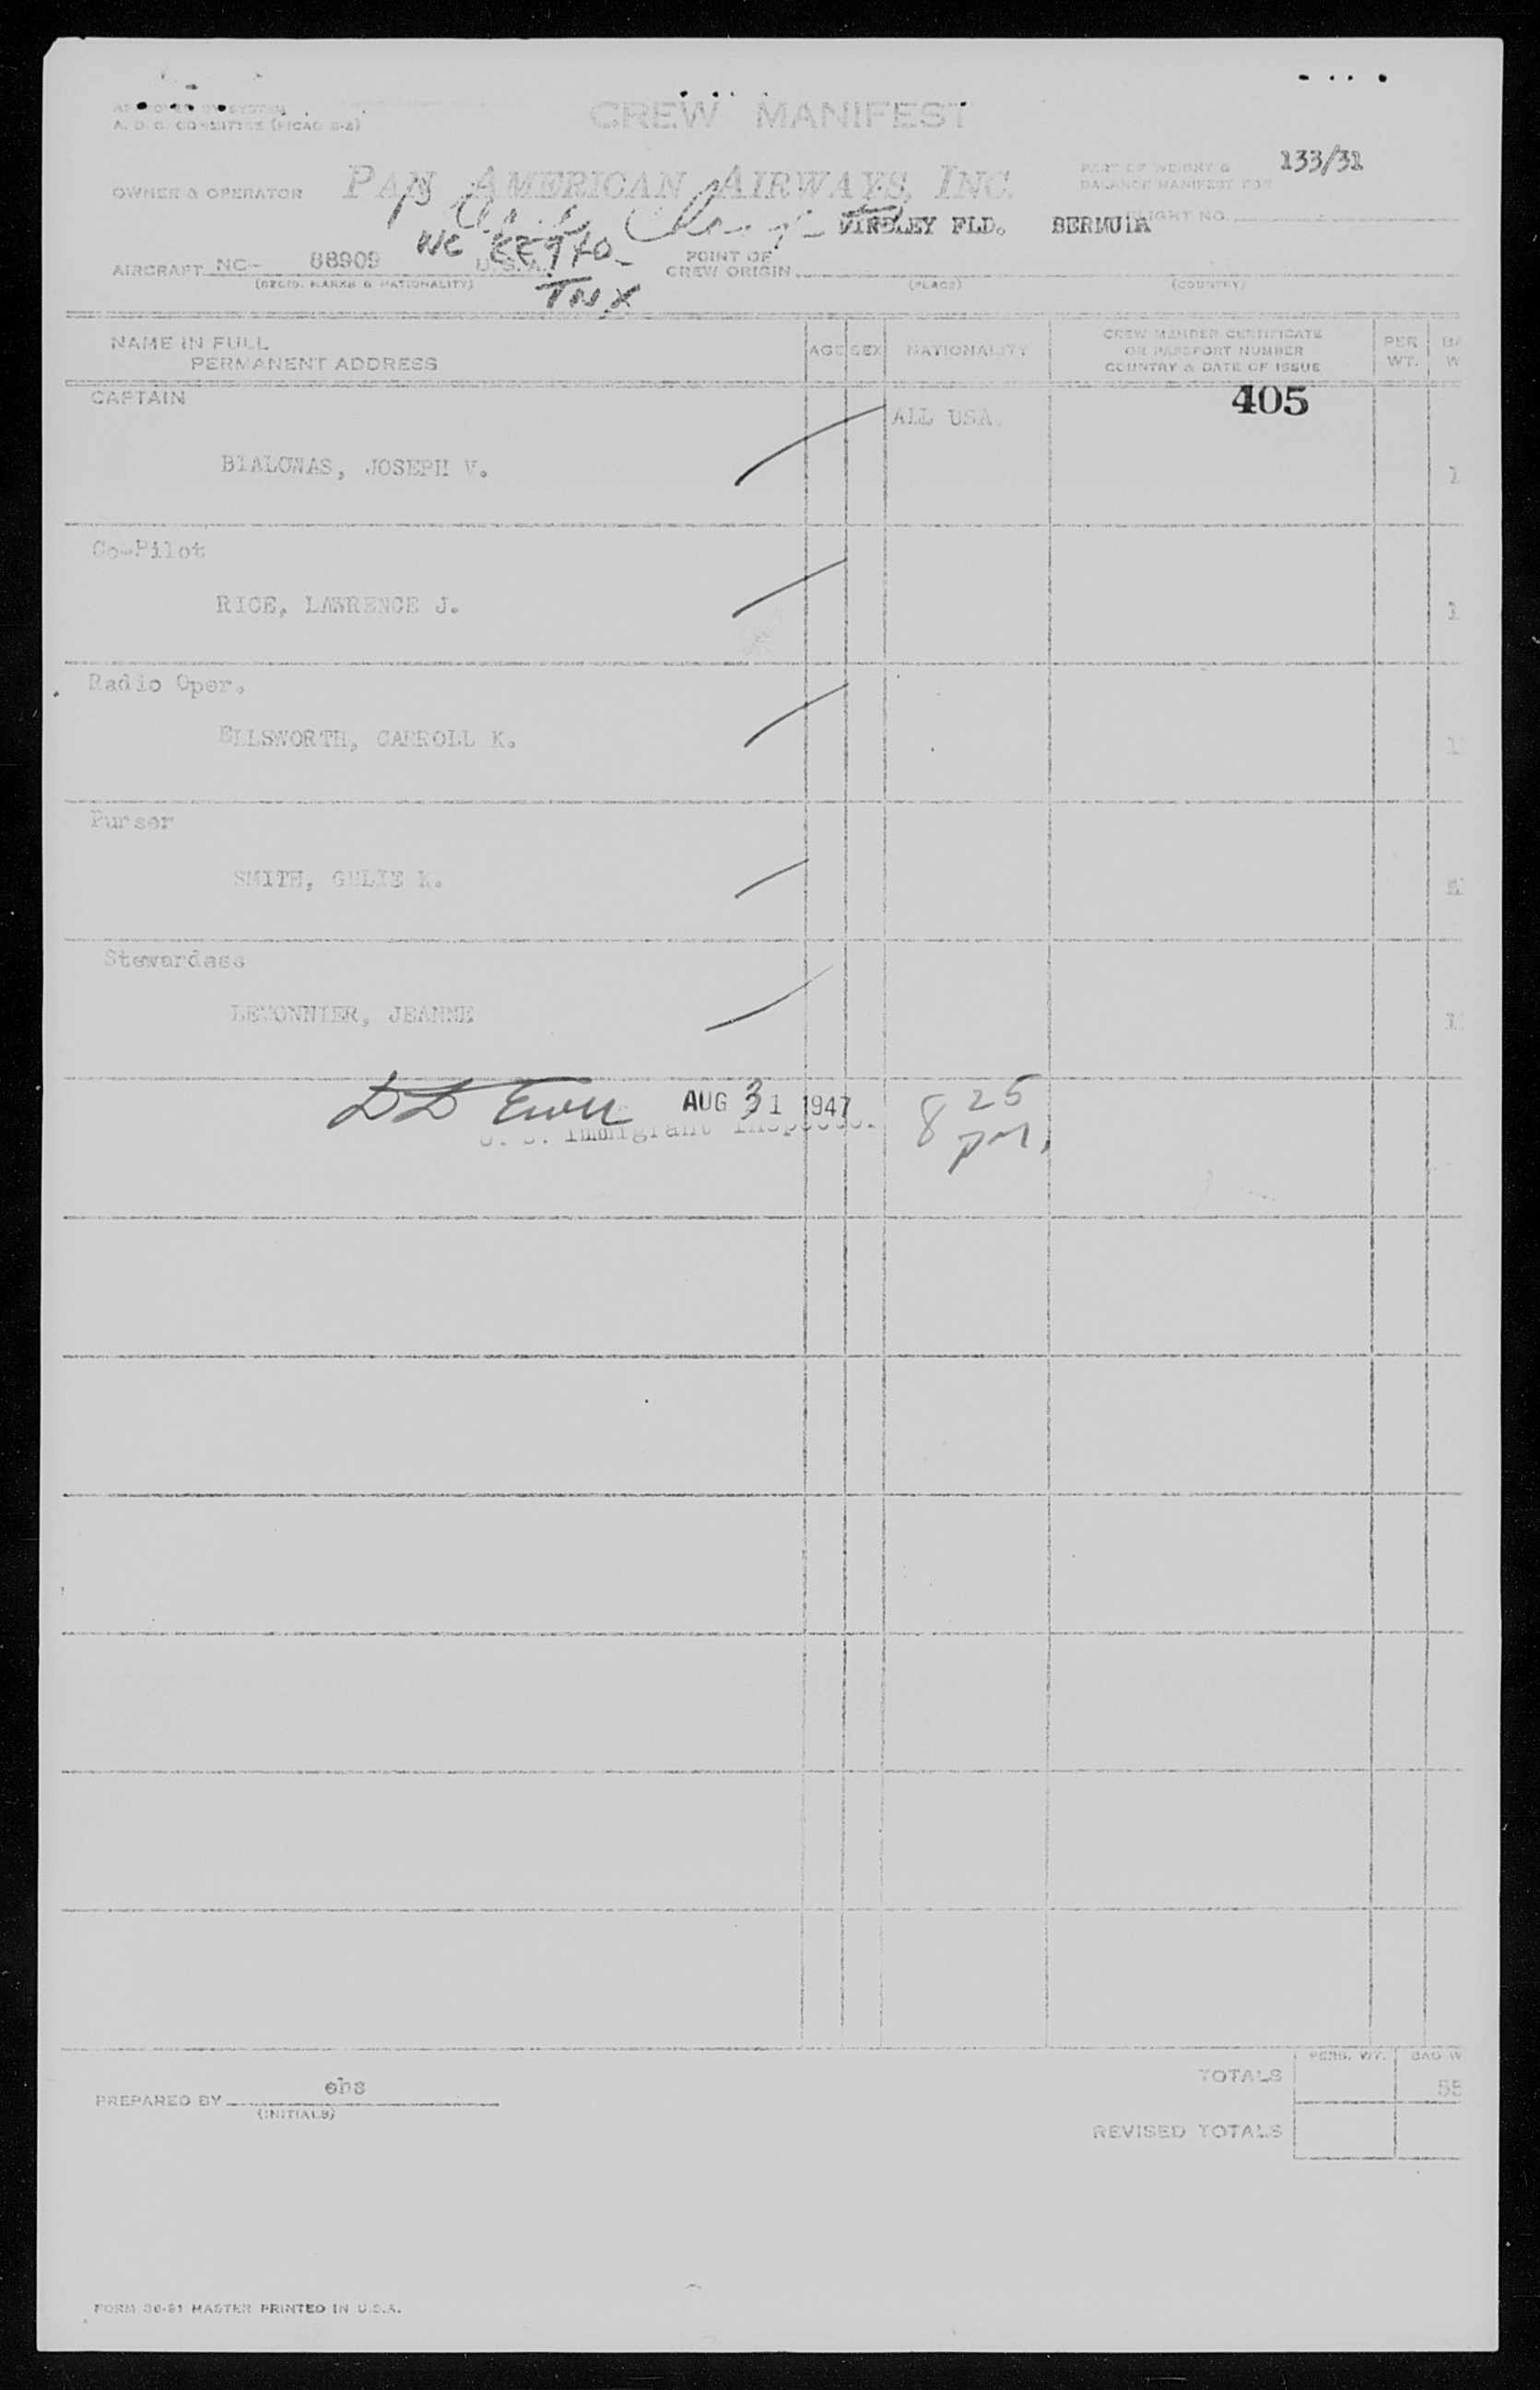 A. D. C. COMMITTEE (PICAO 2-2)
CREW MANIFEST
OWNER & OPERATOR PAN AMERICAN AIRWAYS, INC.
PART OF WEIGHT &
BALANCE MANIFEST FOR
133/31
FLIGHT NO.
KINDLEY FLD. BERMUDA
NC
AIRCRAFT NC- 88909 U.S.A.
(REGIS. MARKS & NATIONALITY)
POINT OF
CREW ORIGIN
(PLACE) (COUNTRY)
TNX
NAME IN FULL
PERMANENT ADDRESS
AGE SEX NATIONALITY
CREW MEMBER CERTIFICATE
OR PASSPORT NUMBER
COUNTRY & DATE OF ISSUE
PER
WT.
CAPTAIN
ALL USA.
405
BIALOWAS, JOSEPH V.
Co-Pilot
RICE, LAWRENCE J.
Radio Oper.
ELLSWORTH, CARROLL K.
Purser
SMITH, GULIE K.
Stewardess
LEMONNIER, JEANNE
AUG 31 1947
8 25 pm.
U. S. Immigrant Inspector
PERS. WT. BAG W
TOTALS 55
REVISED TOTALS
PREPARED BY ehs
(INITIALS)
FORM 36-81 MASTER PRINTED IN U.S.A.